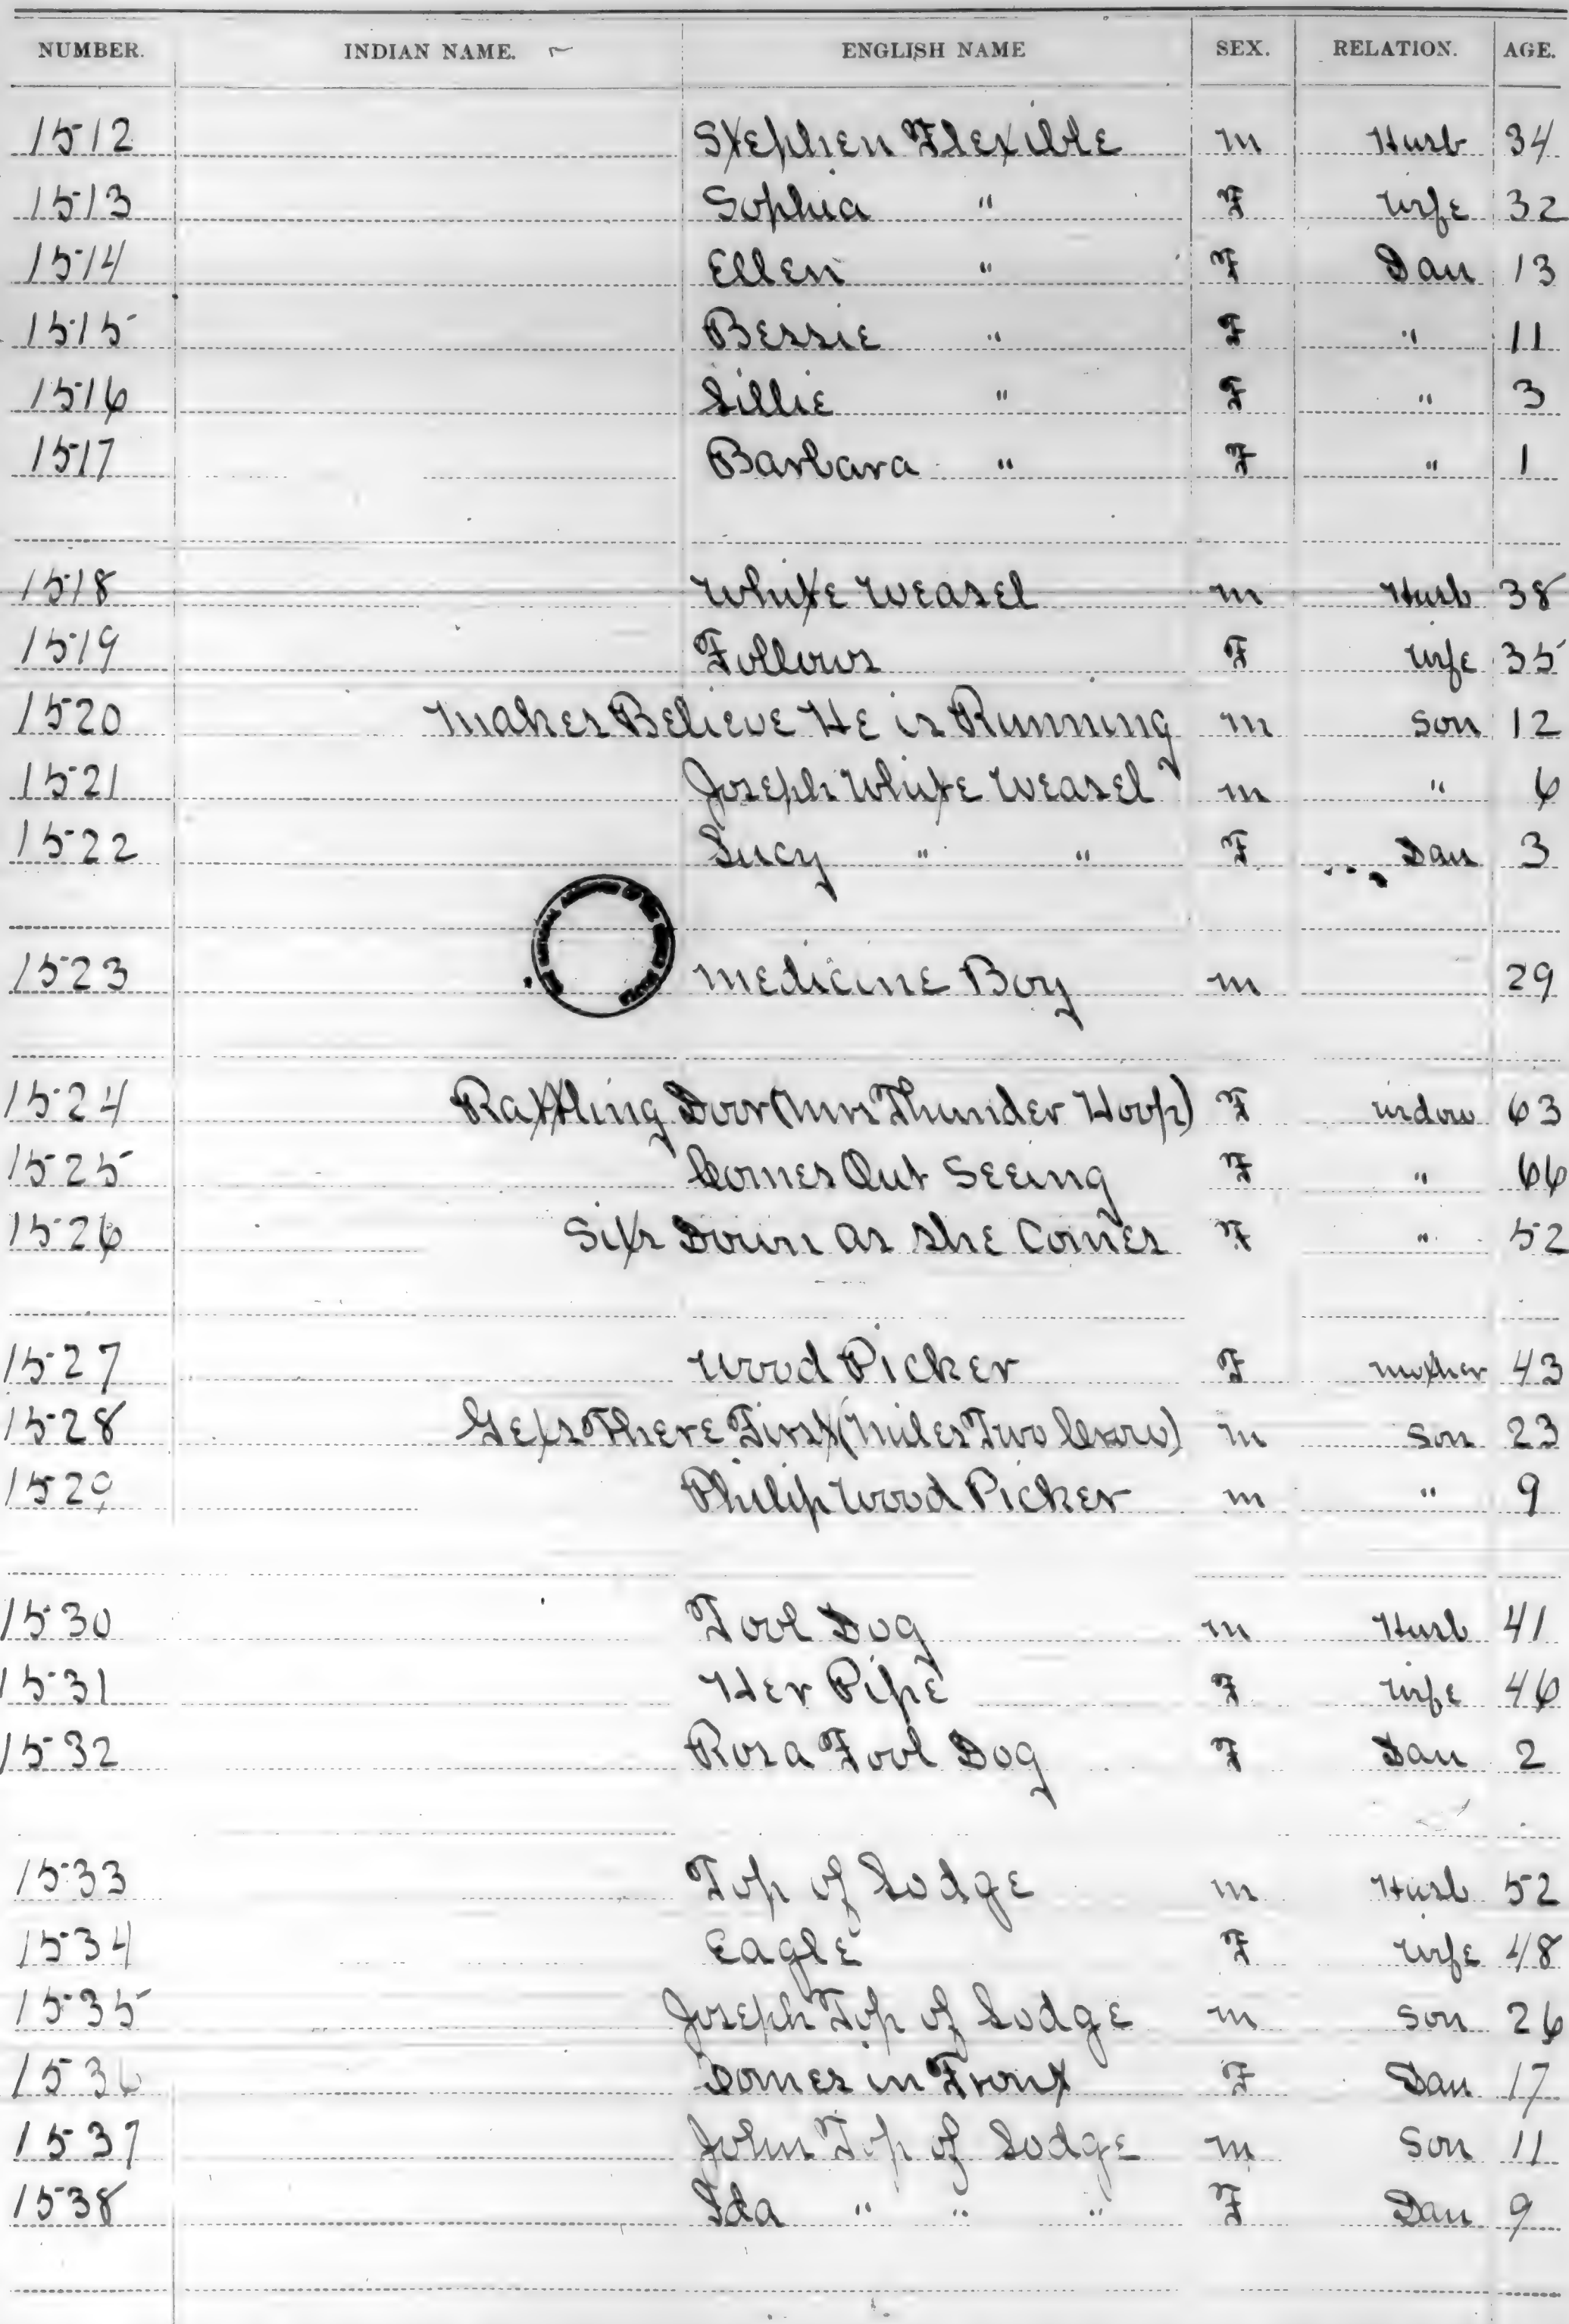 NUMBER. INDIAN NAME. ENGLISH NAME SEX. RELATION. AGE.
1512 Stephen Flexible M Husb 34
1513 Sophia " F Wife 32
1514 Ellen " F Dau 13
1515 Bessie " F " 11
1516 Lillie " F " 3
1517 Barbara " F " 1
1518 White Weasel M Husb 38
1519 Follows F Wife 35
1520 Makes Believe He is Running M Son 12
1521 Joseph White Weasel M " 6
1522 Lucy " " F Dau 3
1523 Medicine Boy M 29
1524 Rattling Door (Mrs Thunder Hoop) F Widow 63
1525 Comes Out Seeing F " 66
1526 Sits Down as she Comes F " 52
1527 Wood Picker F Mother 43
1528 Gets There First (Miles Two Crow) M Son 23
1529 Philip Wood Picker M " 9
1530 Fool Dog M Husb 41
1531 Her Pipe F Wife 46
1532 Rosa Fool Dog F Dau 2
1533 Top of Lodge M Husb 52
1534 Eagle F Wife 48
1535 Joseph Top of Lodge M Son 26
1536 Comes in Front F Dau 17
1537 John Top of Lodge M Son 11
1538 Ida " " " F Dau 9